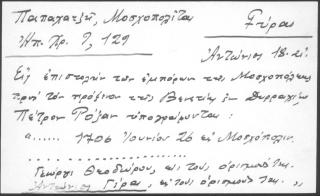 Παπαχατζῆ, Μοσχοπολῖται
Γύρας
Ἠπ. Χρ. 9, 129
Ἀντώνιος 18. αἰ.
Εἰς ἐπιστολὴν τῶν ἐμπόρων τῆς Μοσχοπόλεως
πρὸς τὸν πρόξενον τῆς Βενετίας ἐν Δυρραχίῳ
Πέτρον Ρόζαν ὑπογράφονται:
α...... 1706 Ἰουνίου 26 ἐν Μοσχόπολιν.
Γεώργι Θεοδώρου, εἰς τοὺς ὁρισμούς της.
Ἀντώνιος Γύρας, εἰς τοὺς ὁρισμούς της.